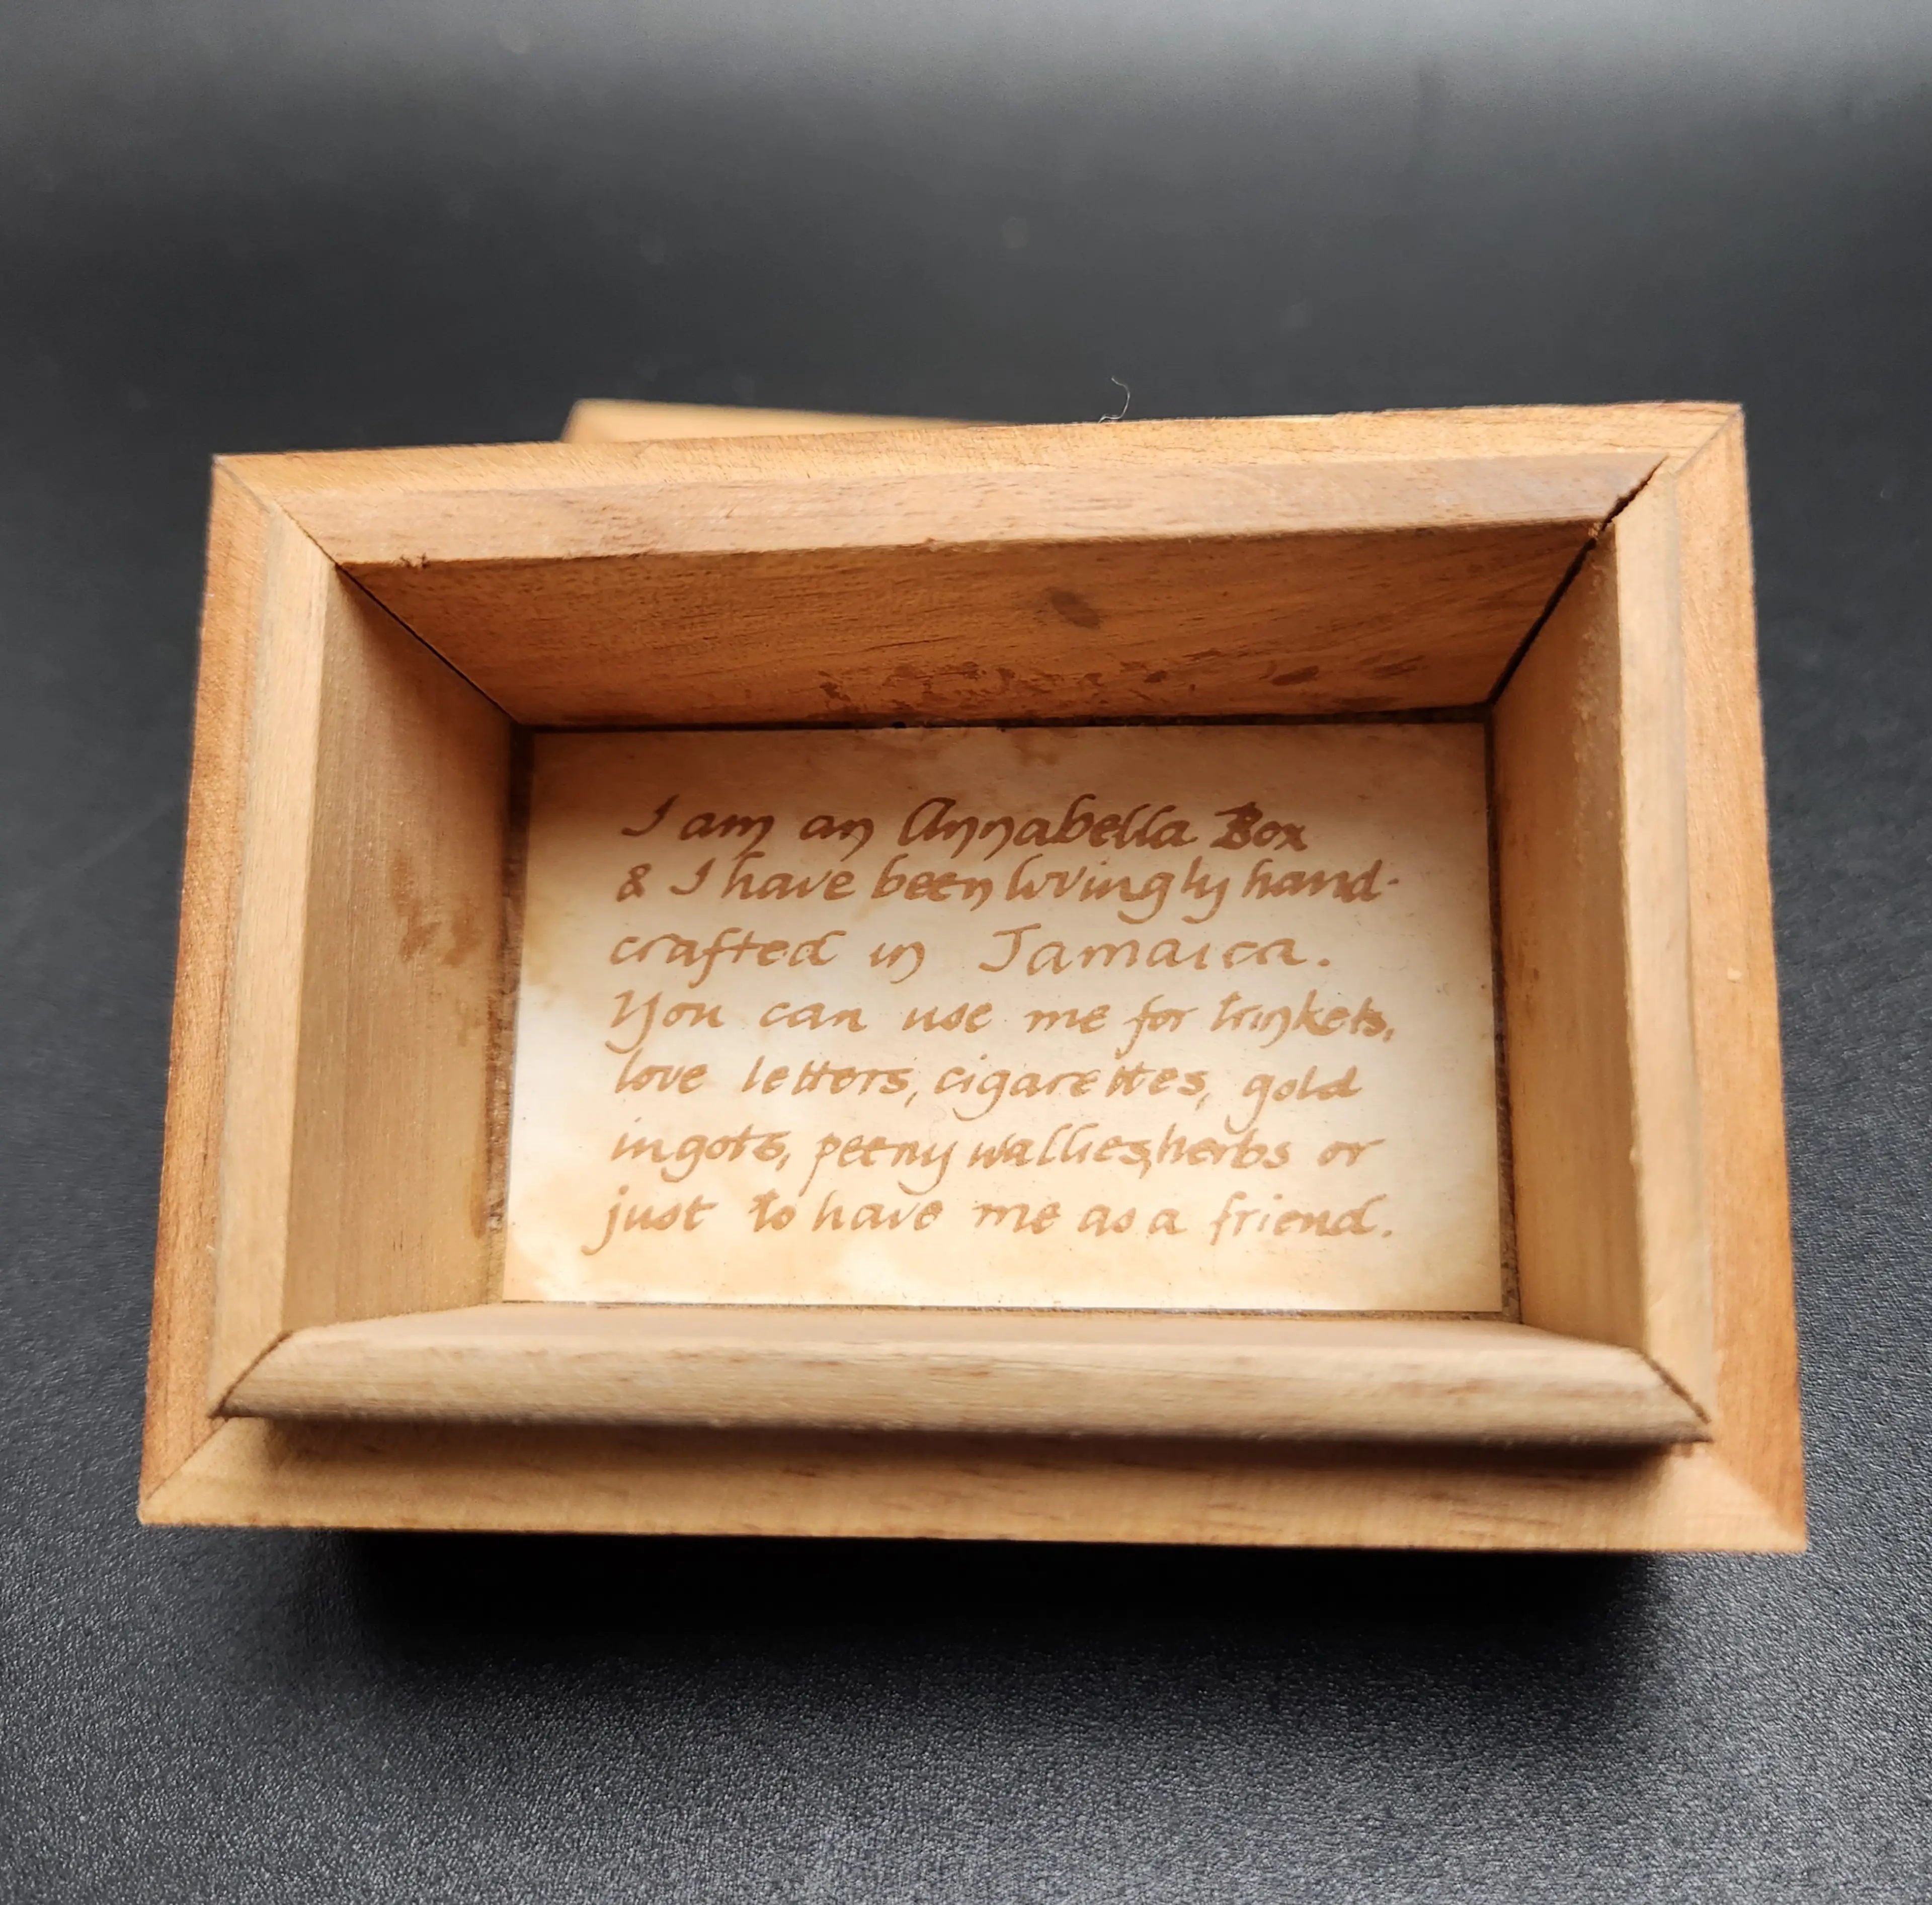 I am an Annabella Box
& I have been lovingly hand-
crafted in Jamaica.
You can use me for trinkets,
love letters, cigarettes, gold
ingots, peeny wallies, herbs or
just to have me as a friend.